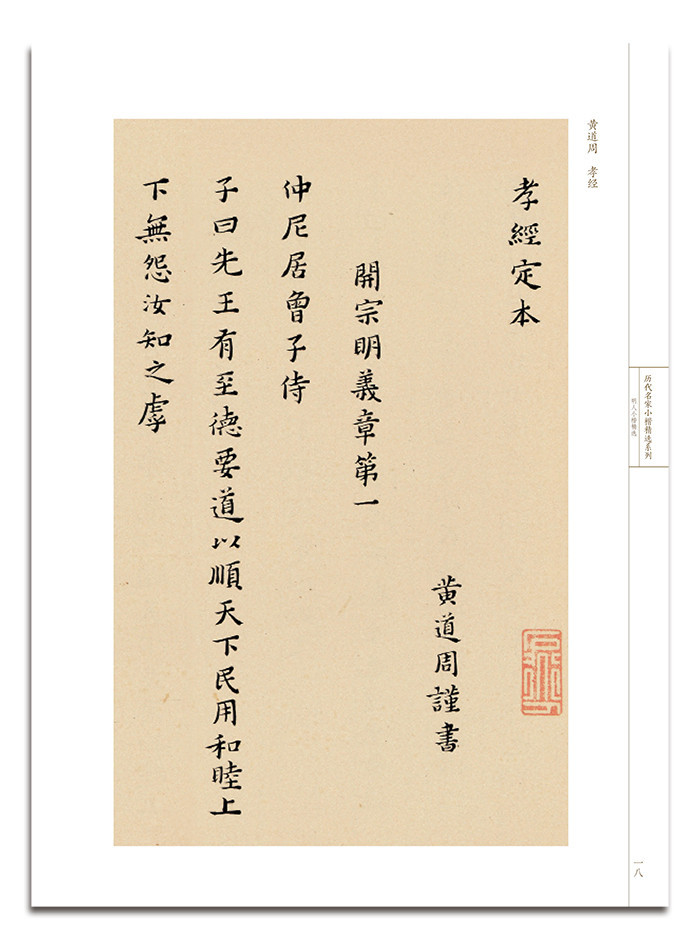 历代名家小楷精选系列
明人小楷精选
一八
黄道周 孝经
孝經定本
黄道周謹書
開宗明義章第一
仲尼居曾子侍
子曰先王有至德要道以順天下民用和睦上
下無怨汝知之虖